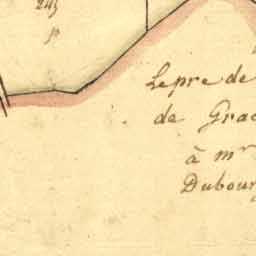 243
p
Lepre de
de Grac
à mr
Dubour